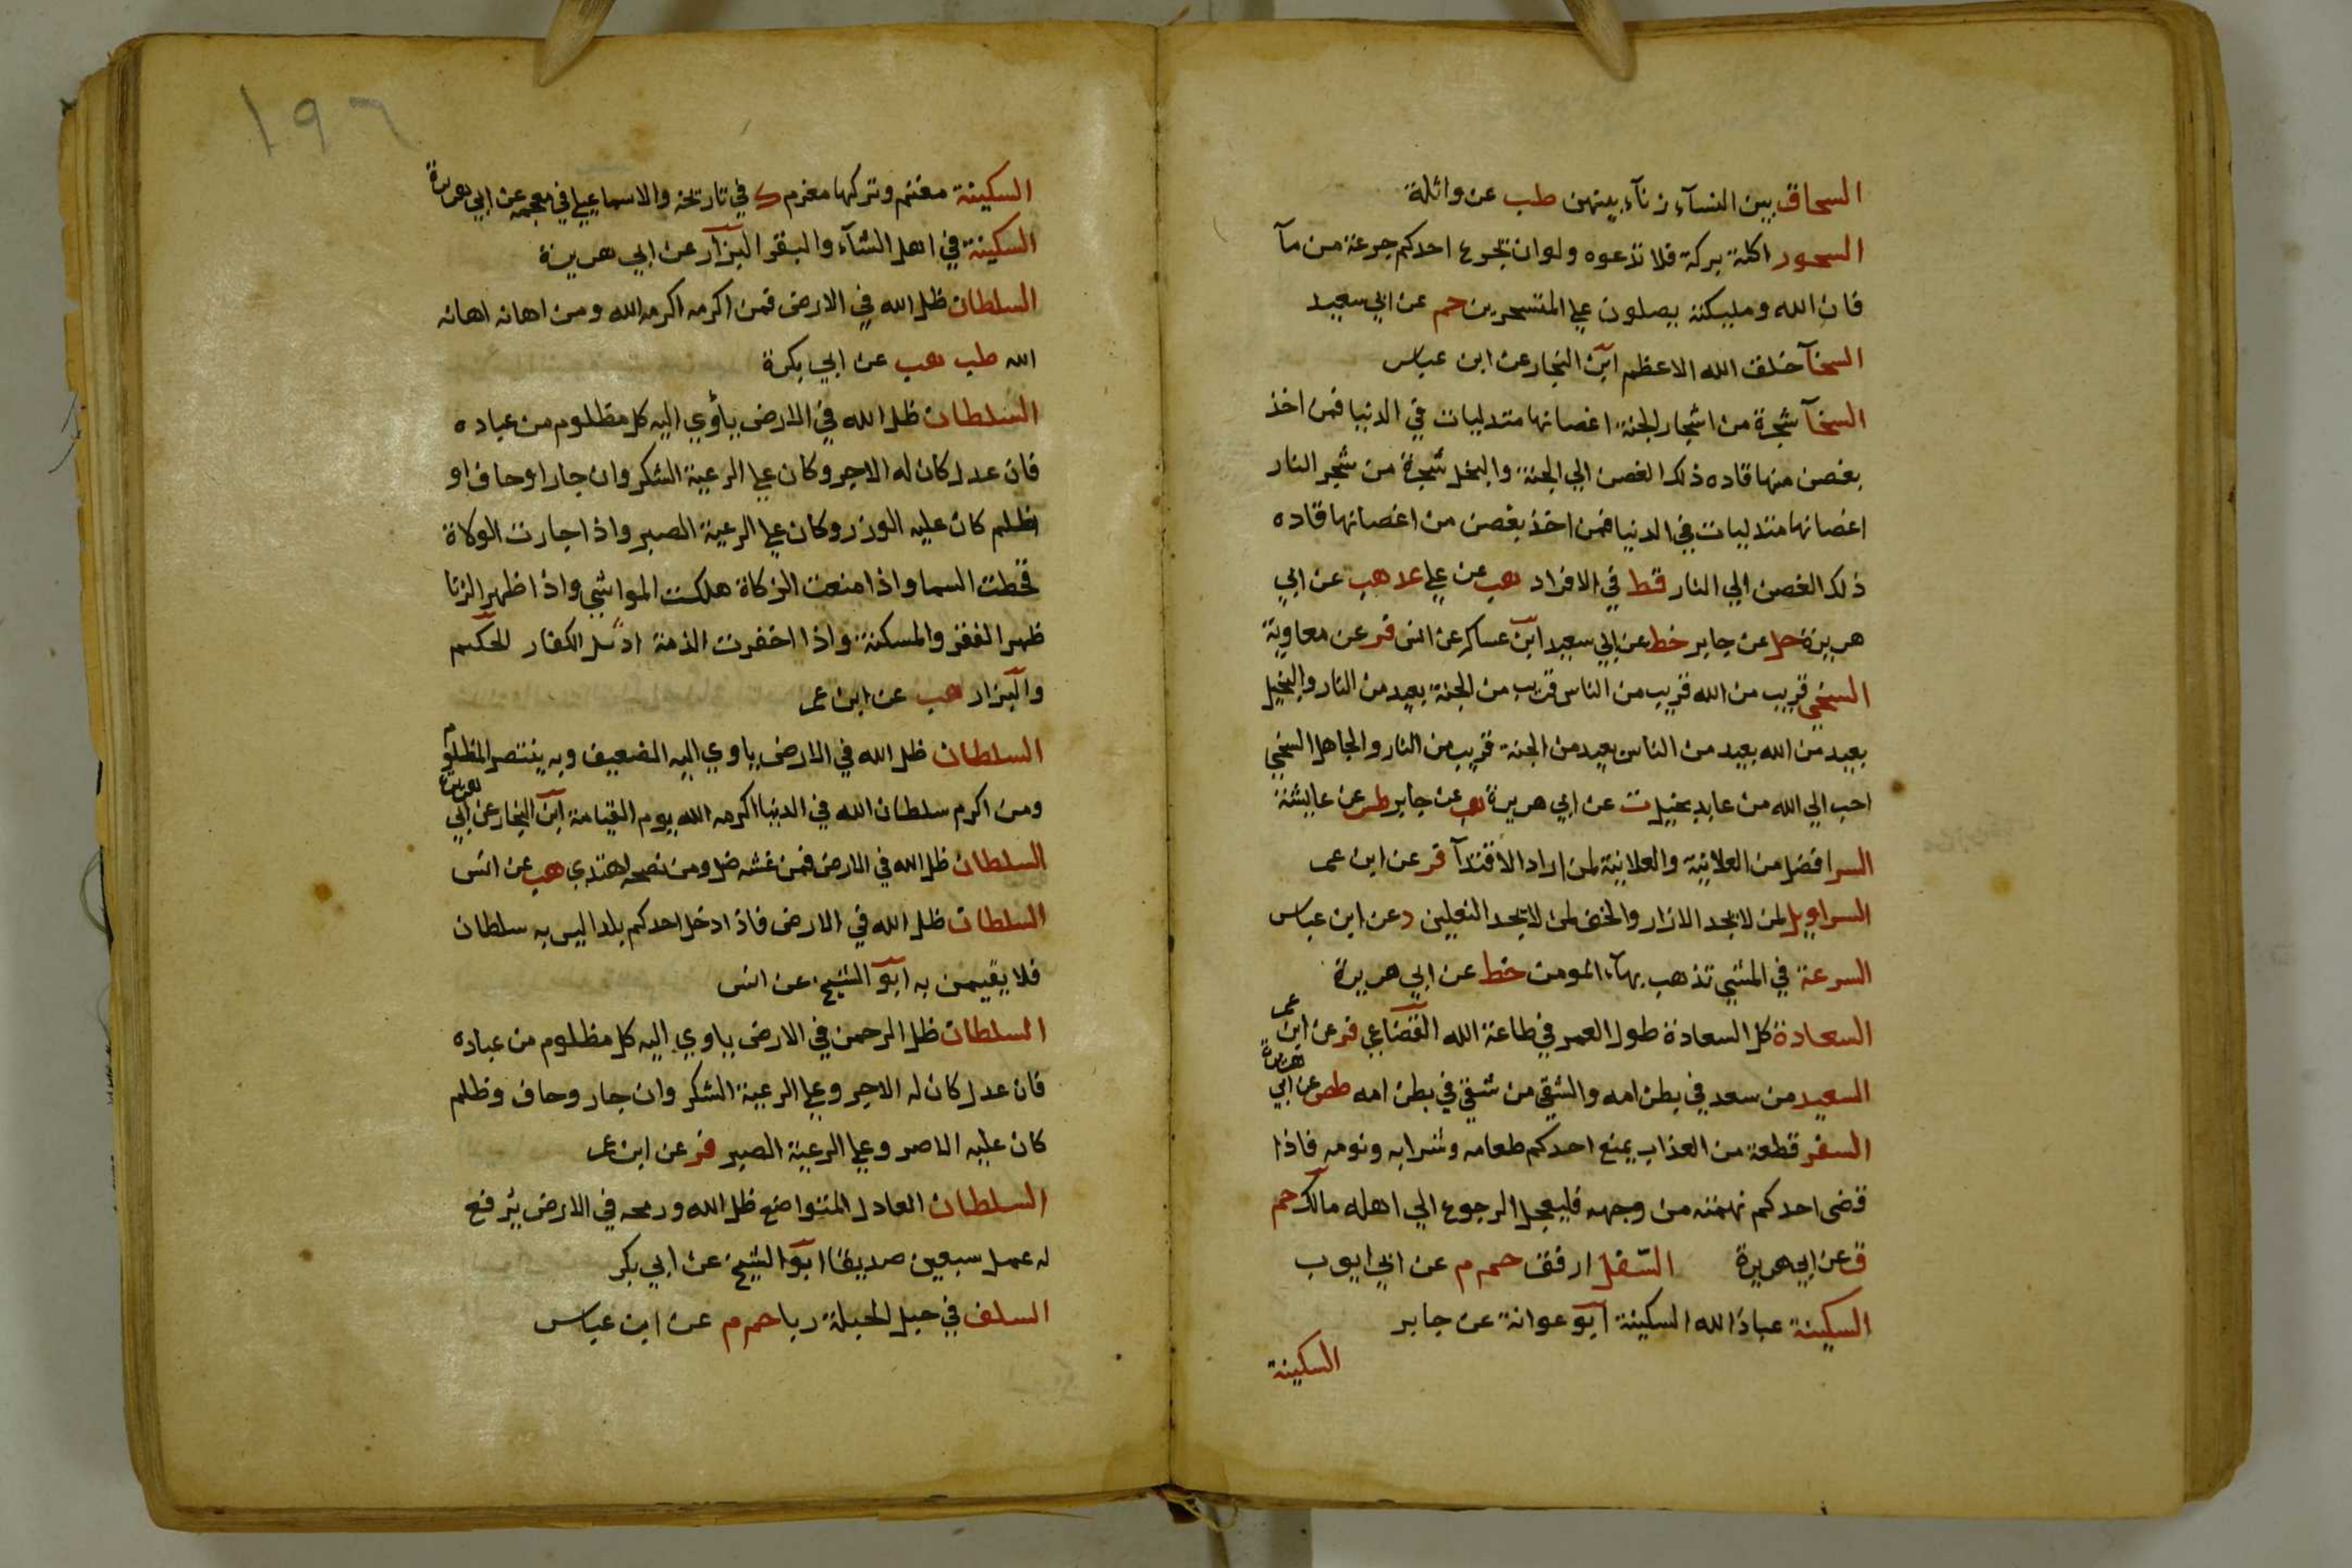 السحاق بين النسآء زنآء بينهن طب عن واثلة
السحور اكلة بركة فلا تدعوه ولو ان يجرع احدكم جرعة من مآ
فان الله ومليكته يصلون علي المتسحرين حم عن ابي سعيد
السخآ خلق الله الاعظم ابن النجار عن ابن عباس
السخآ شجرة من اشجار الجنة اغصانها متدليات في الدنيا فمن اخذ
بغصن منها قاده ذلك الغصن الي الجنة والبخل شجرة من شجر النار
اغصانها متدليات في الدنيا فمن اخذ بغصن من اغصانها قاده
ذلك الغصن الي النار قط في الافراد هب عن علي عد هب عن ابي
هريرة حل عن جابر خط عن ابي سعيد ابن عساكر عن انس فر عن معاوية
السخي قريب من الله قريب من الناس قريب من الجنة بعيد من النار والبخيل
بعيد من الله بعيد من الناس بعيد من الجنة قريب من النار والجاهل السخي
احب الي الله من عابد بخيل ت عن ابي هريرة هب عن جابر طس عن عايشة
السر افضل من العلانية والعلانية لمن اراد الاقتدآ فر عن ابن عمر
السراويل لمن لا يجد الازار والخف لمن لا يجد النعلين د عن ابن عباس
السرعة في المشي تذهب بهآء المومن خط عن ابي هريرة
السعادة كل السعادة طول العمر في طاعة الله القضاعي فر عن ابن عمر
السعيد من سعد في بطن امه والشقي من شقي في بطن امه طص عن ابي هريرة
السفر قطعة من العذاب يمنع احدكم طعامه وشرابه ونومه فاذا
قضى احدكم نهمته من وجهه فليعجل الرجوع الي اهله مالك حم
ق عن ابي هريرة السفل ارفق حم م عن ابي ايوب
السكينة عباد الله السكينة ابو عوانة عن جابر
السكينة
١٩٦
السكينة مغنم وتركها مغرم ك في تاريخه والاسماعيلي في معجمه عن ابي هريرة
السكينة في اهل الشآء والبقر البزار عن ابي هريرة
السلطان ظل الله في الارض فمن اكرمه اكرمه الله ومن اهانه اهانه
الله طب هب عن ابي بكرة
السلطان ظل الله في الارض ياوي اليه كل مظلوم من عباده
فان عدل كان له الاجر وكان علي الرعية الشكر وان جار او حاف او
ظلم كان عليه الوزر وكان علي الرعية الصبر واذا جارت الولاة
قحطت السما واذا منعت الزكاة هلكت المواشي واذا ظهر الزنا
ظهر الفقر والمسكنة واذا اخفرت الذمة اديل الكفار الحكيم
والبزار هب عن ابن عمر
السلطان ظل الله في الارض ياوي اليه الضعيف وبه ينتصر المظلوم
ومن اكرم سلطان الله في الدنيا اكرمه الله يوم القيامة ابن النجار عن ابي هريرة
السلطان ظل الله في الارض فمن غشه ضل ومن نصحه اهتدي هب عن انس
السلطان ظل الله في الارض فاذا دخل احدكم بلدا ليس به سلطان
فلا يقيمن به ابو الشيخ عن انس
السلطان ظل الرحمن في الارض ياوي اليه كل مظلوم من عباده
فان عدل كان له الاجر وعلي الرعية الشكر وان جار وحاف وظلم
كان عليه الاصر وعلي الرعية الصبر فر عن ابن عمر
السلطان العادل المتواضع ظل الله ورمحه في الارض يرفع
له عمل سبعين صديقا ابو الشيخ عن ابي بكر
السلف في حبل الحبلة ربا حم م عن ابن عباس